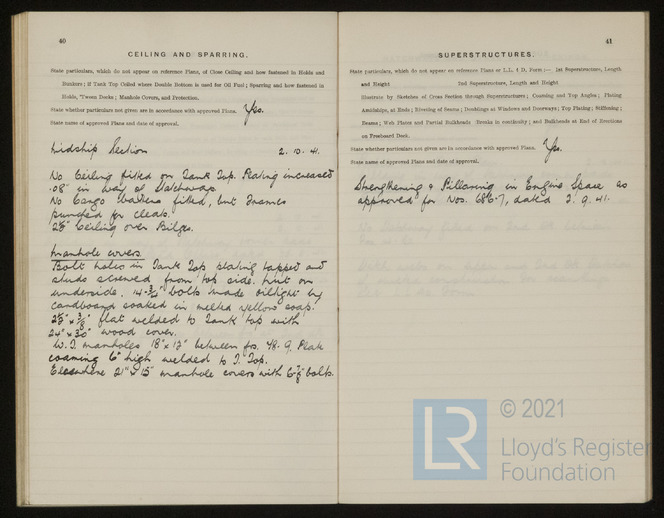 40
CEILING AND SPARRING.
State particulars, which do not appear on reference Plans, of Close Ceiling and how fastened in Holds and
Bunkers; if Tank Top Ceiled where Double Bottom is used for Oil Fuel; Sparring and how fastened in
Holds, 'Tween Decks; Manhole Covers, and Protection.
State whether particulars not given are in accordance with approved Plans. Yes.
State name of approved Plans and date of approval.
Midship Section 2. 10. 41.
No Ceiling fitted on Tank Top. Plating increased
.08" in way of Hatchways
No Cargo battens fitted, but Frames
punched for cleats.
2½" Ceiling over Bilges.
Manhole covers.
Bolt holes in Tank Top plating tapped and
studs screwed from top side. Nut on
underside. 14-¾" bolts made oiltight by
cardboard soaked in melted yellow soap.
flat welded to Tank top with
24" x 30" wood cover.
W.T. manholes 18" x 12" between frs. 78. 9. Plate
coaming 6" high welded to T. Top.
Elsewhere 21" x 15" manhole covers with bolts.
41
SUPERSTRUCTURES.
State particulars, which do not appear on reference Plans or L.L. 4 D. Form:— 1st Superstructure, Length
and Height 2nd Superstructure, Length and Height
Illustrate by Sketches of Cross Section through Superstructures; Coaming and Top Angles; Plating
Amidships, at Ends; Riveting of Seams; Doublings at Windows and Doorways; Top Plating; Stiffening;
Beams; Web Plates and Partial Bulkheads Breaks in continuity; and Bulkheads at End of Erections
on Freeboard Deck.
State whether particulars not given are in accordance with approved Plans. Yes.
State name of approved Plans and date of approval.
Strengthening & Pillaring in Engine Space as
approved for Nos. 686-7, dated 2. 9. 41.
LR
© 2021
Lloyd's Register
Foundation